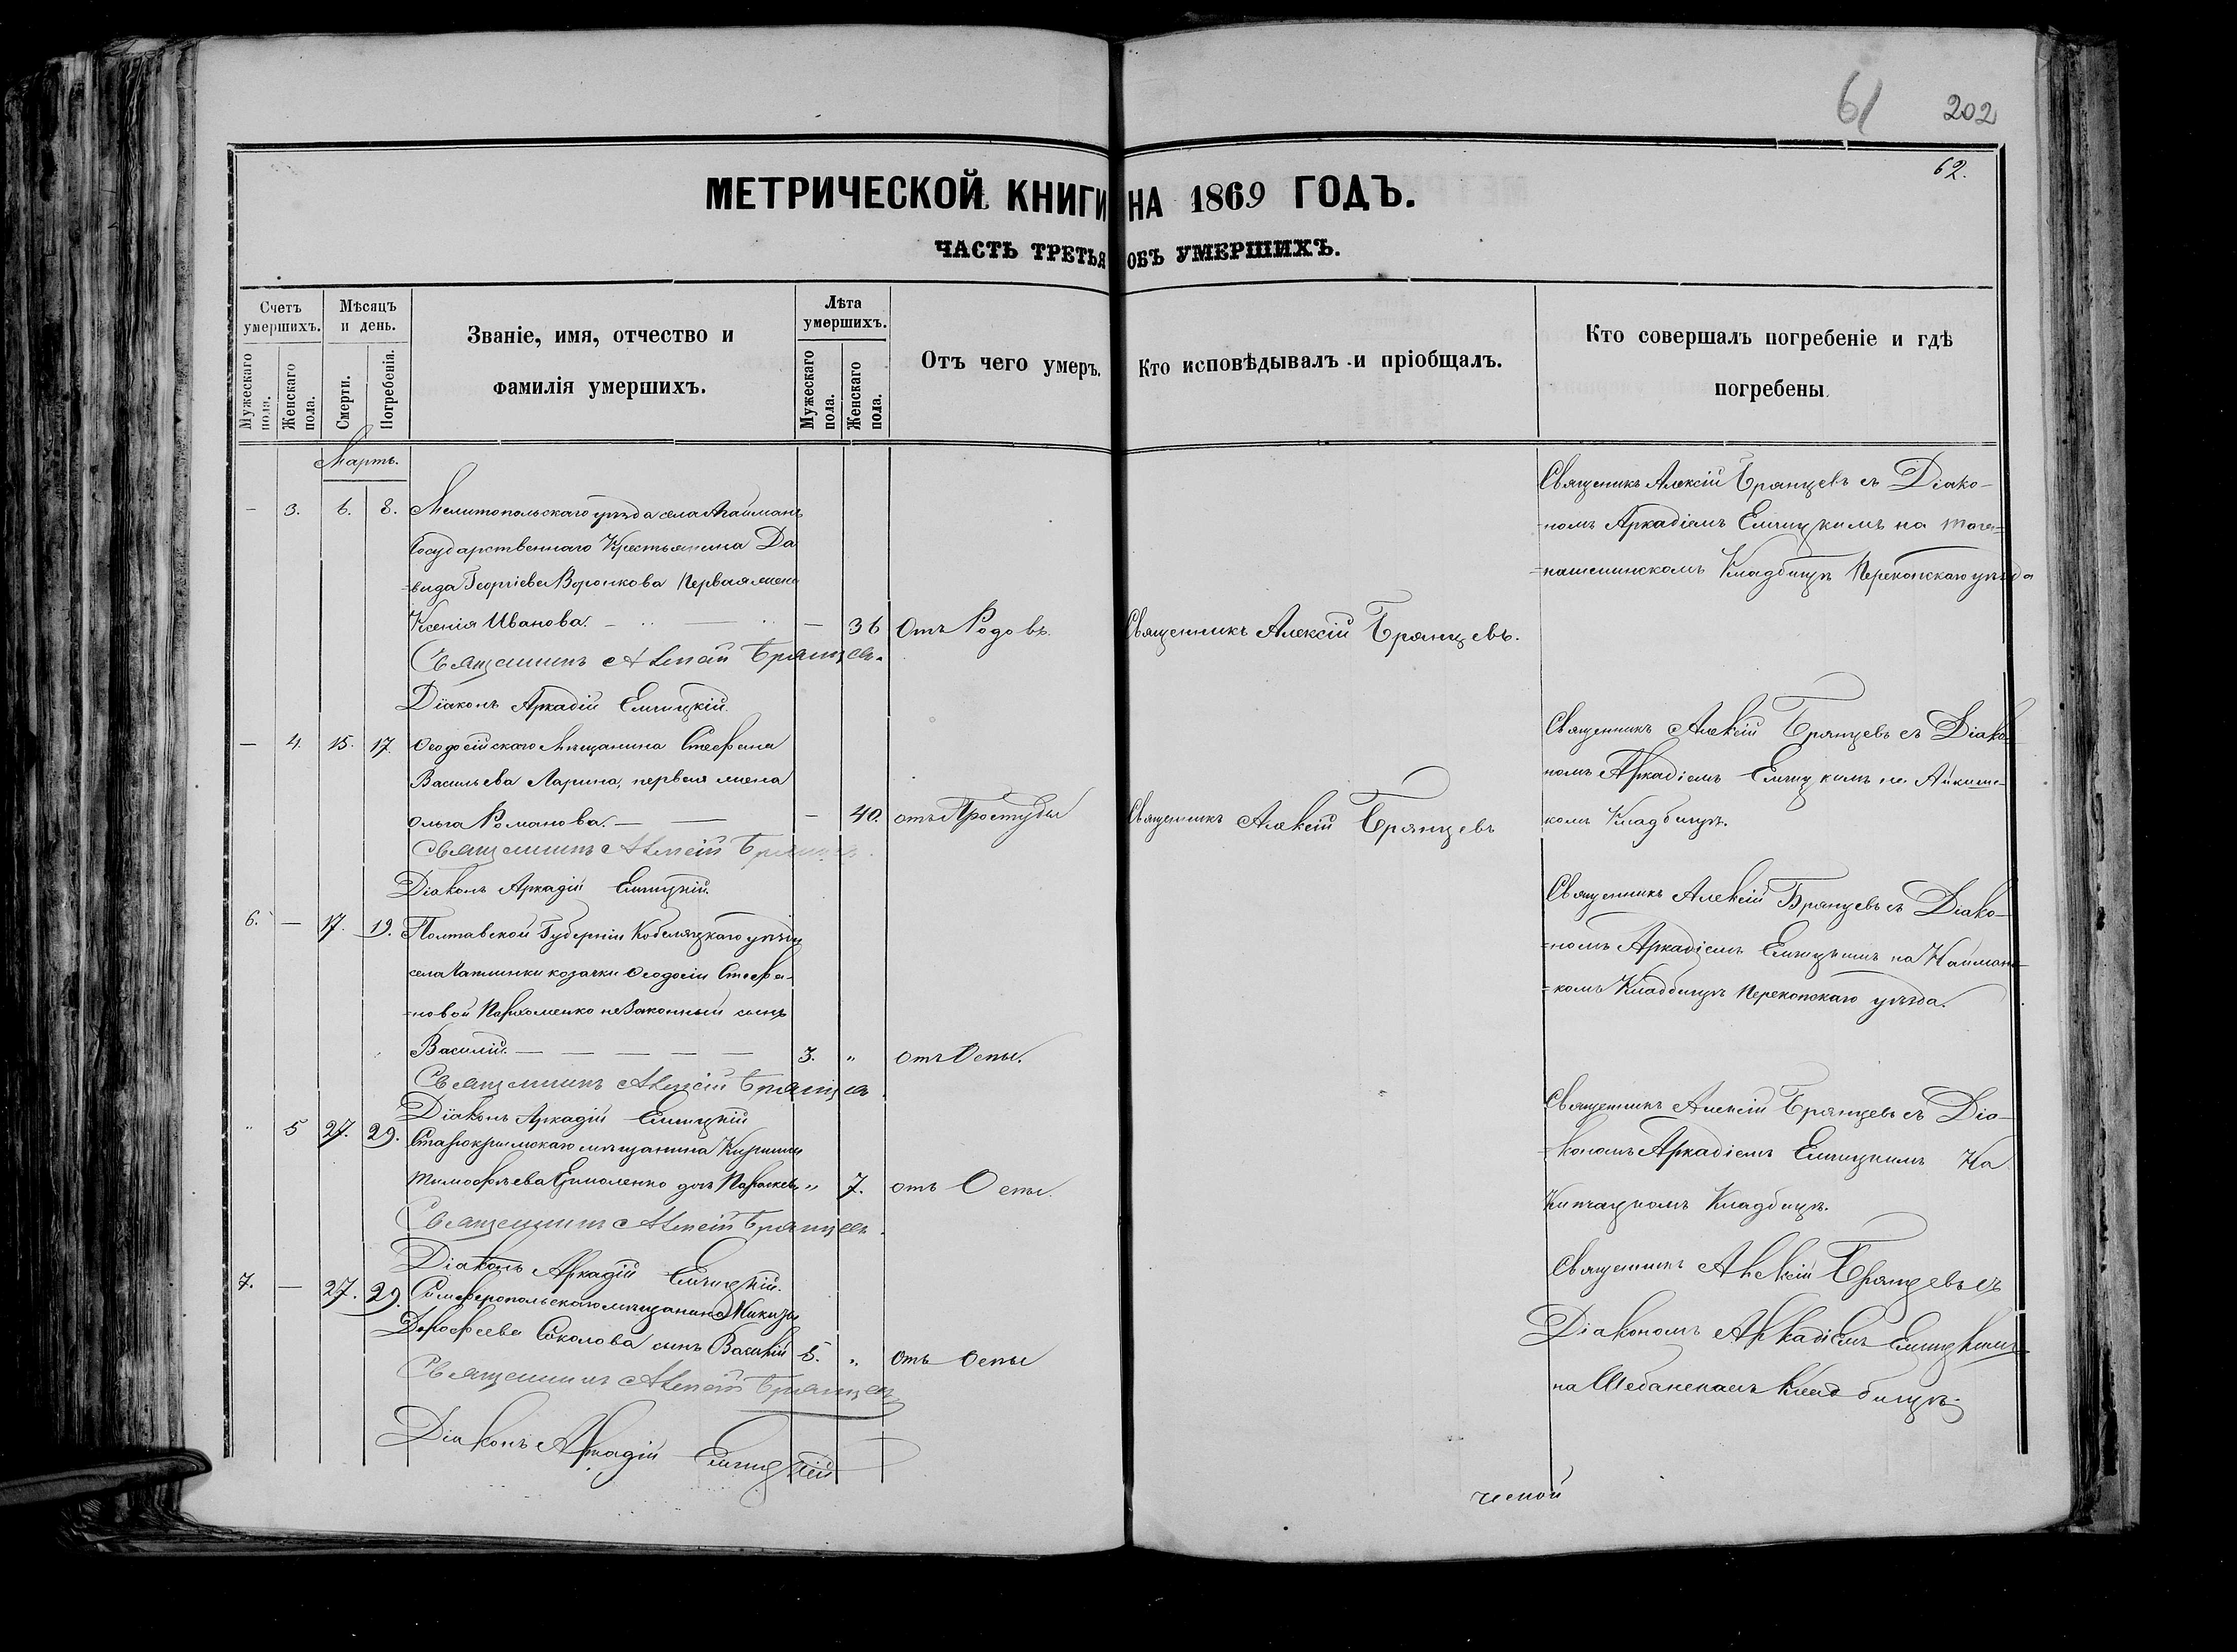 61 202
62.
МЕТРИЧЕСКОЙ КНИГИ НА 1869 ГОДЪ.
ЧАСТЬ ТРЕТЬЯ ОБЪ УМЕРШИХЪ.
Счетъ умершихъ.
Мужескаго пола.
Женскаго пола.
Мѣсяцъ и день.
Смерти.
Погребенія.
Званіе, имя, отчество и
фамилія умершихъ.
Лѣта умершихъ.
Мужескаго пола.
Женскаго пола.
Отъ чего умеръ.
Кто исповѣдывалъ и пріобщалъ.
Кто совершалъ погребеніе и гдѣ
погребены.
Мартъ.
— 3. 6. 8. Мелитопольскаго уѣзда села Агайманъ
Государственнаго Крестьянина Да
=вида Георгіева Воронкова первая жена
Ксенія Иванова. — — 36 Отъ Родовъ. Священникъ Алексій Брянцевъ.
Священникъ Алексій Брянцевъ с Діако-
=номъ Аркадіемъ Емчицкимъ на
Кладбищѣ Перекопскаго уѣзда
Священникъ Алексій Брянцевъ.
Діаконъ Аркадій Емчицкій.
— 4. 15. 17. Ѳеодосійскаго Мѣщанина Стефана
Васильева Ларина, первая жена
Ольга Романова. — — 40. отъ Простуды Священникъ Алексій Брянцевъ
Священникъ Алексій Брянцевъ съ Діако-
номъ Аркадіемъ Емчицкимъ на
комъ Кладбищѣ.
Священникъ Алексій Брянцевъ.
Діаконъ Аркадій Емчицкій.
6. — 17. 19. Полтавской Губерніи Кобеляцкаго уѣзда
села козачки Ѳеодосіи Стефа-
=новой Пархоменко незаконный сынъ
Василій. — — — — — 3. „ отъ Оспы.
Священникъ Алексій Брянцевъ съ Діако-
=номъ Аркадіемъ Емчицкимъ на Найман-
=комъ Кладбищѣ Перекопскаго уѣзда.
Священникъ Алексій Брянцевъ
Діаконъ Аркадій Емчицкій
„ 5 27. 29. Старокрымскаго мѣщанина Кирилла
Тимофѣева Ермоленко дочь Параскева „ 7. отъ Оспы.
Священникъ Алексій Брянцевъ съ Діа-
=кономъ Аркадіемъ Емчицкимъ На
Кипчацкомъ Кладбищѣ.
Священникъ Алексій Брянцевъ.
Діаконъ Аркадій Емчицкій.
7. — 27. 29. Симферопольскаго мѣщанина Никиты
Дорофеева Соколова сынъ Василій 5. „ Отъ Оспы
Священникъ Алексій Брянцевъ съ
Діакономъ Аркадіемъ Емчицкимъ
на Шебанскомъ Кладбищѣ.
Священникъ Алексій Брянцевъ
Діаконъ Аркадій Емчицкій
ческой